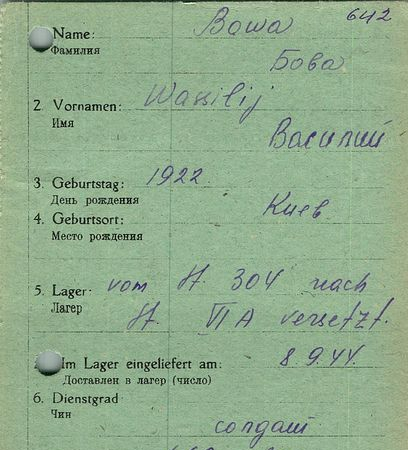 642
Name: Bowa
Фамилия Бова
2. Vornamen: Wassilij
Имя Василий
3. Geburtstag: 1922
День рождения
4. Geburtsort: Киев
Место рождения
5. Lager: vom St. 304 nach
Лагер St. VI A versetzt.
Im Lager eingeliefert am: 8.9.44.
Доставлен в лагер (число)
6. Dienstgrad
Чин солдат